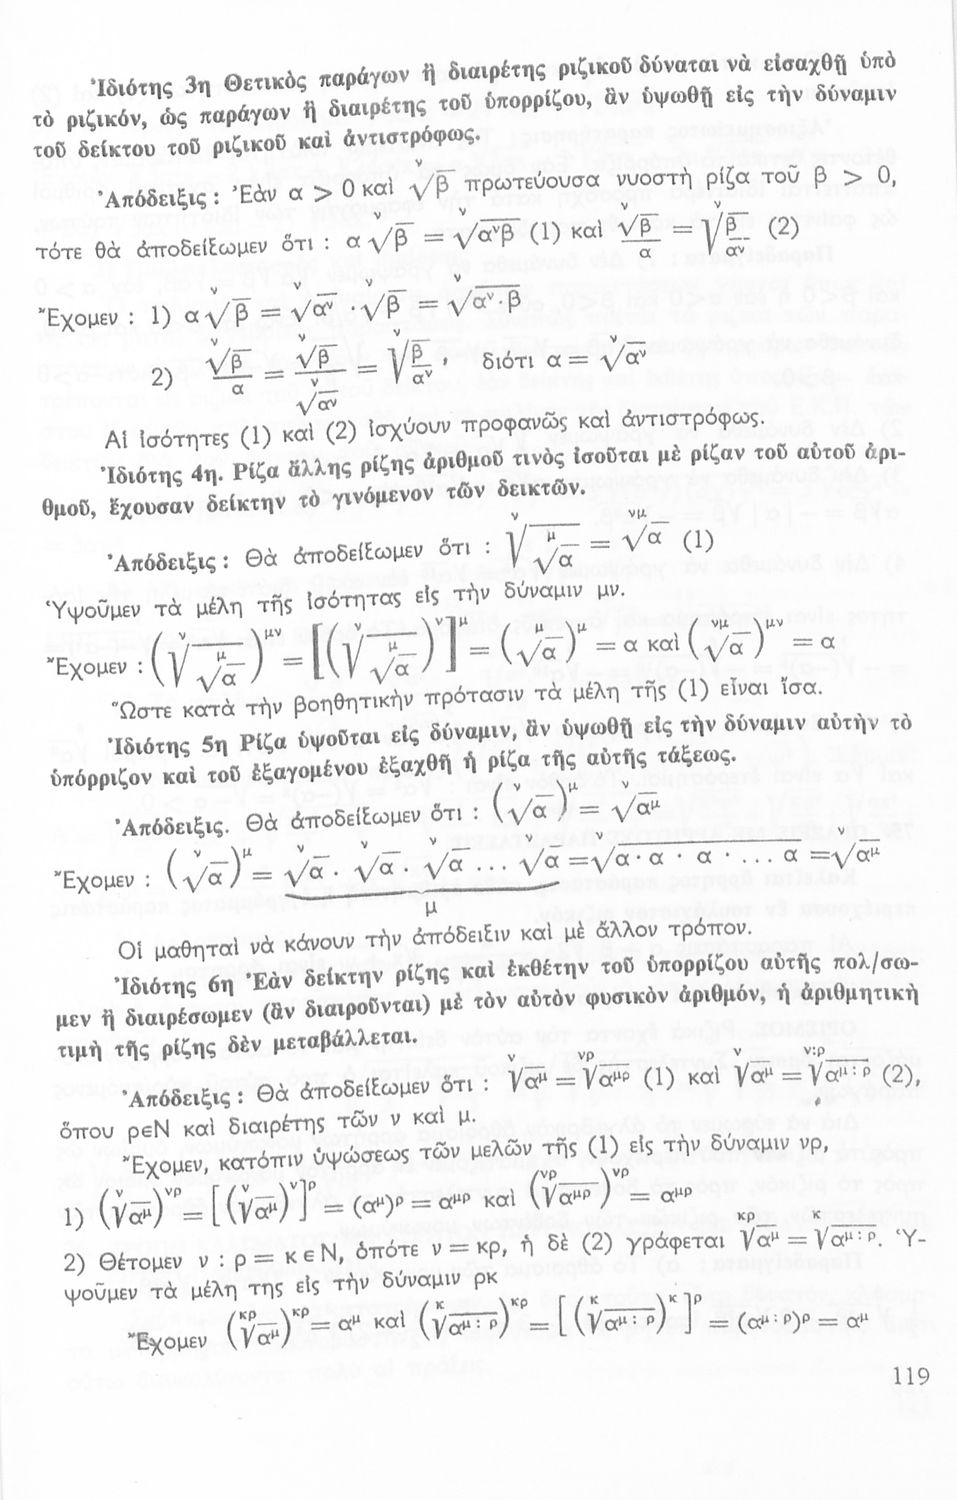 Ἰδιότης 3η Θετικὸς παράγων ἢ διαιρέτης ριζικοῦ δύναται νὰ εἰσαχθῇ ὑπὸ
τὸ ριζικόν, ὡς παράγων ἢ διαιρέτης τοῦ ὑπορρίζου, ἂν ὑψωθῇ εἰς τὴν δύναμιν
τοῦ δείκτου τοῦ ριζικοῦ καὶ ἀντιστρόφως.
Ἀπόδειξις : Ἐὰν α > 0 καὶ ᵛ√β πρωτεύουσα νυοστὴ ρίζα τοῦ β > 0,
τότε θὰ ἀποδείξωμεν ὅτι : α ᵛ√β = ᵛ√(αᵛβ) (1) καὶ ᵛ√β / α = ᵛ√(β/αᵛ) (2)
Ἔχομεν : 1) α ᵛ√β = ᵛ√αᵛ · ᵛ√β = ᵛ√(αᵛ·β)
2) ᵛ√β / α = ᵛ√β / ᵛ√αᵛ = ᵛ√(β/αᵛ) , διότι α = ᵛ√αᵛ
Αἱ ἰσότητες (1) καὶ (2) ἰσχύουν προφανῶς καὶ ἀντιστρόφως.
Ἰδιότης 4η. Ρίζα ἄλλης ρίζης ἀριθμοῦ τινὸς ἰσοῦται μὲ ρίζαν τοῦ αὐτοῦ ἀρι-
θμοῦ, ἔχουσαν δείκτην τὸ γινόμενον τῶν δεικτῶν.
Ἀπόδειξις : Θὰ ἀποδείξωμεν ὅτι : ᵛ√(ᵘ√α) = ᵛᵘ√α (1)
Ὑψοῦμεν τὰ μέλη τῆς ἰσότητας εἰς τὴν δύναμιν μν.
Ἔχομεν : (ᵛ√(ᵘ√α))ᵘᵛ = [(ᵛ√(ᵘ√α))ᵛ]ᵘ = (ᵘ√α)ᵘ = α καὶ (ᵛᵘ√α)ᵘᵛ = α
Ὥστε κατὰ τὴν βοηθητικὴν πρότασιν τὰ μέλη τῆς (1) εἶναι ἴσα.
Ἰδιότης 5η Ρίζα ὑψοῦται εἰς δύναμιν, ἂν ὑψωθῇ εἰς τὴν δύναμιν αὐτὴν τὸ
ὑπόρριζον καὶ τοῦ ἐξαγομένου ἐξαχθῇ ἡ ρίζα τῆς αὐτῆς τάξεως.
Ἀπόδειξις. Θὰ ἀποδείξωμεν ὅτι : (ᵛ√α)ᵘ = ᵛ√αᵘ
Ἔχομεν : (ᵛ√α)ᵘ = ᵛ√α · ᵛ√α · ᵛ√α ... ᵛ√α = ᵛ√(α · α · α · ... α) = ᵛ√αᵘ
μ
Οἱ μαθηταὶ νὰ κάνουν τὴν ἀπόδειξιν καὶ μὲ ἄλλον τρόπον.
Ἰδιότης 6η Ἐὰν δείκτην ρίζης καὶ ἐκθέτην τοῦ ὑπορρίζου αὐτῆς πολ/σω-
μεν ἢ διαιρέσωμεν (ἂν διαιροῦνται) μὲ τὸν αὐτὸν φυσικὸν ἀριθμόν, ἡ ἀριθμητικὴ
τιμὴ τῆς ρίζης δὲν μεταβάλλεται.
Ἀπόδειξις : Θὰ ἀποδείξωμεν ὅτι : ᵛ√αᵘ = ᵛᵖ√αᵘᵖ (1) καὶ ᵛ√αᵘ = ᵛ:ᵖ√αᵘ:ᵖ (2),
ὅπου ρϵΝ καὶ διαιρέτης τῶν ν καὶ μ.
Ἔχομεν, κατόπιν ὑψώσεως τῶν μελῶν τῆς (1) εἰς τὴν δύναμιν νρ,
1) (ᵛ√αᵘ)ᵛᵖ = [(ᵛ√αᵘ)ᵛ]ᵖ = (αᵘ)ᵖ = αᵘᵖ καὶ (ᵛᵖ√αᵘᵖ)ᵛᵖ = αᵘᵖ
2) Θέτομεν ν : ρ = κ ϵ Ν, ὁπότε ν = κρ, ἡ δὲ (2) γράφεται ᵏᵖ√αᵘ = ᵏ√αᵘ:ᵖ. Ὑ-
ψοῦμεν τὰ μέλη της εἰς τὴν δύναμιν ρκ
Ἔχομεν (ᵏᵖ√αᵘ)ᵏᵖ = αᵘ καὶ (ᵏ√αᵘ:ᵖ)ᵏᵖ = [(ᵏ√αᵘ:ᵖ)ᵏ]ᵖ = (αᵘ:ᵖ)ᵖ = αᵘ
119